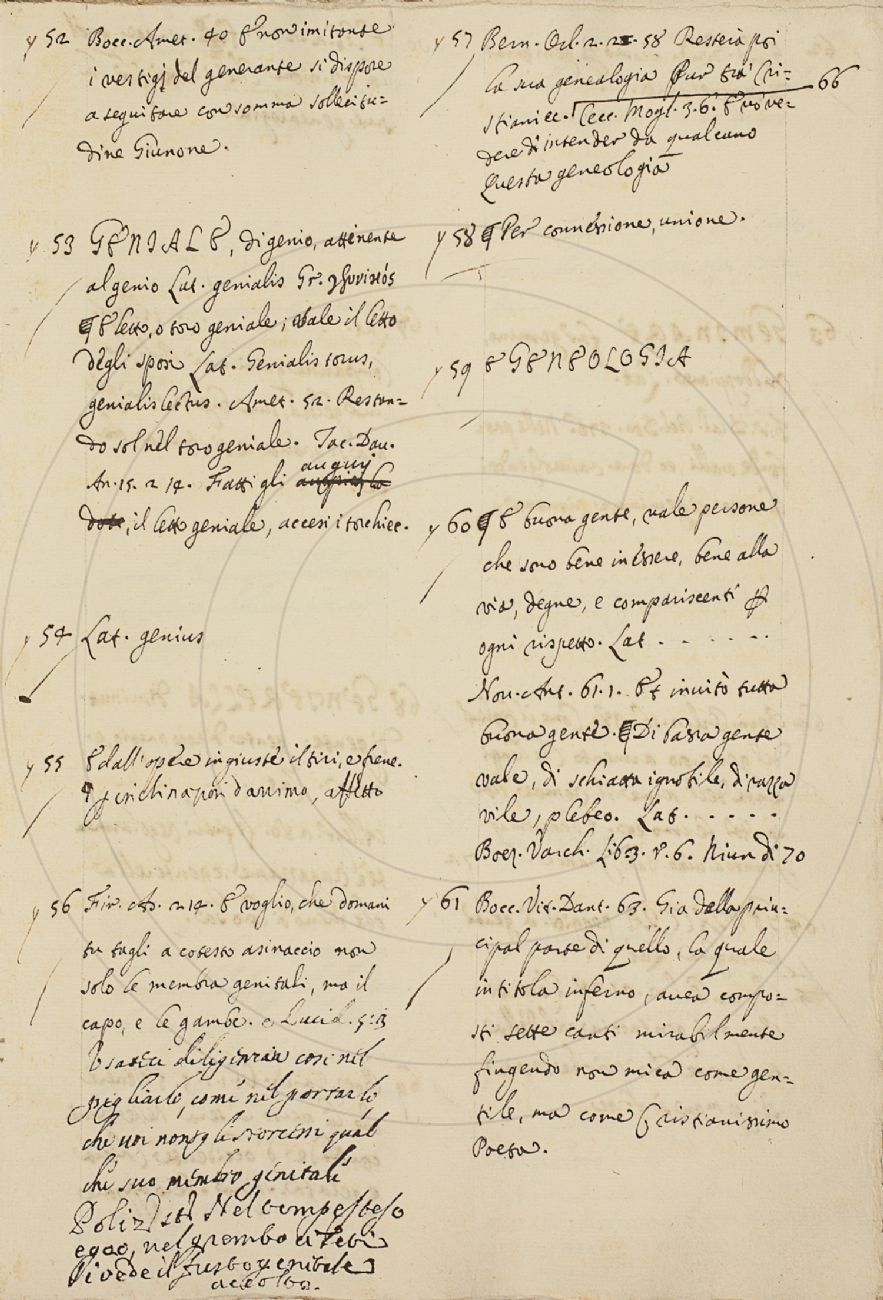 52 Bocc. Amet. 40 E non imitante
i vestigj del generante si dispose
a seguitare con somma sollecitu=
dine Giunone.
53 GENIALE, di genio, attenente
al genio Lat. genialis Gr.
¶ E letto, o toro geniale, vale il letto
degli sposi Lat. Genialis torus,
genialis lectus. Amet. 52. Restan=
do sol nel toro geniale. Tac. Dav.
An. 15. 214. Fatti gli augurj
il letto geniale, accesi i torchi ec.
54 Lat. genius
55 E dall'opere ingiuste il tiri, e frene.
¶ inclinazion d'animo, affetto
56 Fir. As. 214. E voglio, che domani
tu tagli a cotesto asinaccio non
solo le membra genitali, ma il
capo, e le gambe. Lucid. 5.
diligenza così nel
pigliarlo, come nel portarlo,
che voi non gli storcessi qual
che suo membro genitale
Poliz. st. Nel tempestoso
egeo, nel grembo a Teti
Si vede il fusto genitale
accolto.
57 Bern. Orl. 2. 2. 58 Resterà poi
la sua genealogia Pur tra' Cri=
stiani ec. Cecc. Mogl. 3. 6. E' vo' ve= 66
dere di intender da qualcuno
Questa geneologia
58 ¶ Per connessione, unione.
59 E GENEOLOGIA
60 ¶ E buona gente, vale persone
che sono bene in essere, bene alla
via, degne, e compariscenti p
ogni rispetto. Lat . . . . . .
Nov. Ant. 61. 1. Et invitò tutta
buona gente. ¶ Di bassa gente
vale, di schiatta ignobile, di razza
vile, plebeo. Lat. . . . . .
Boez. Varch. L. 3. P. 6. Niun di 70
61 Bocc. Vit. Dant. 63. Gia della prin=
cipal parte di quello, la quale
intitola inferno, avea compo=
sti sette canti mirabilmente
fingendo non mica come gen=
tile, ma come Cristianissimo
Poeta.